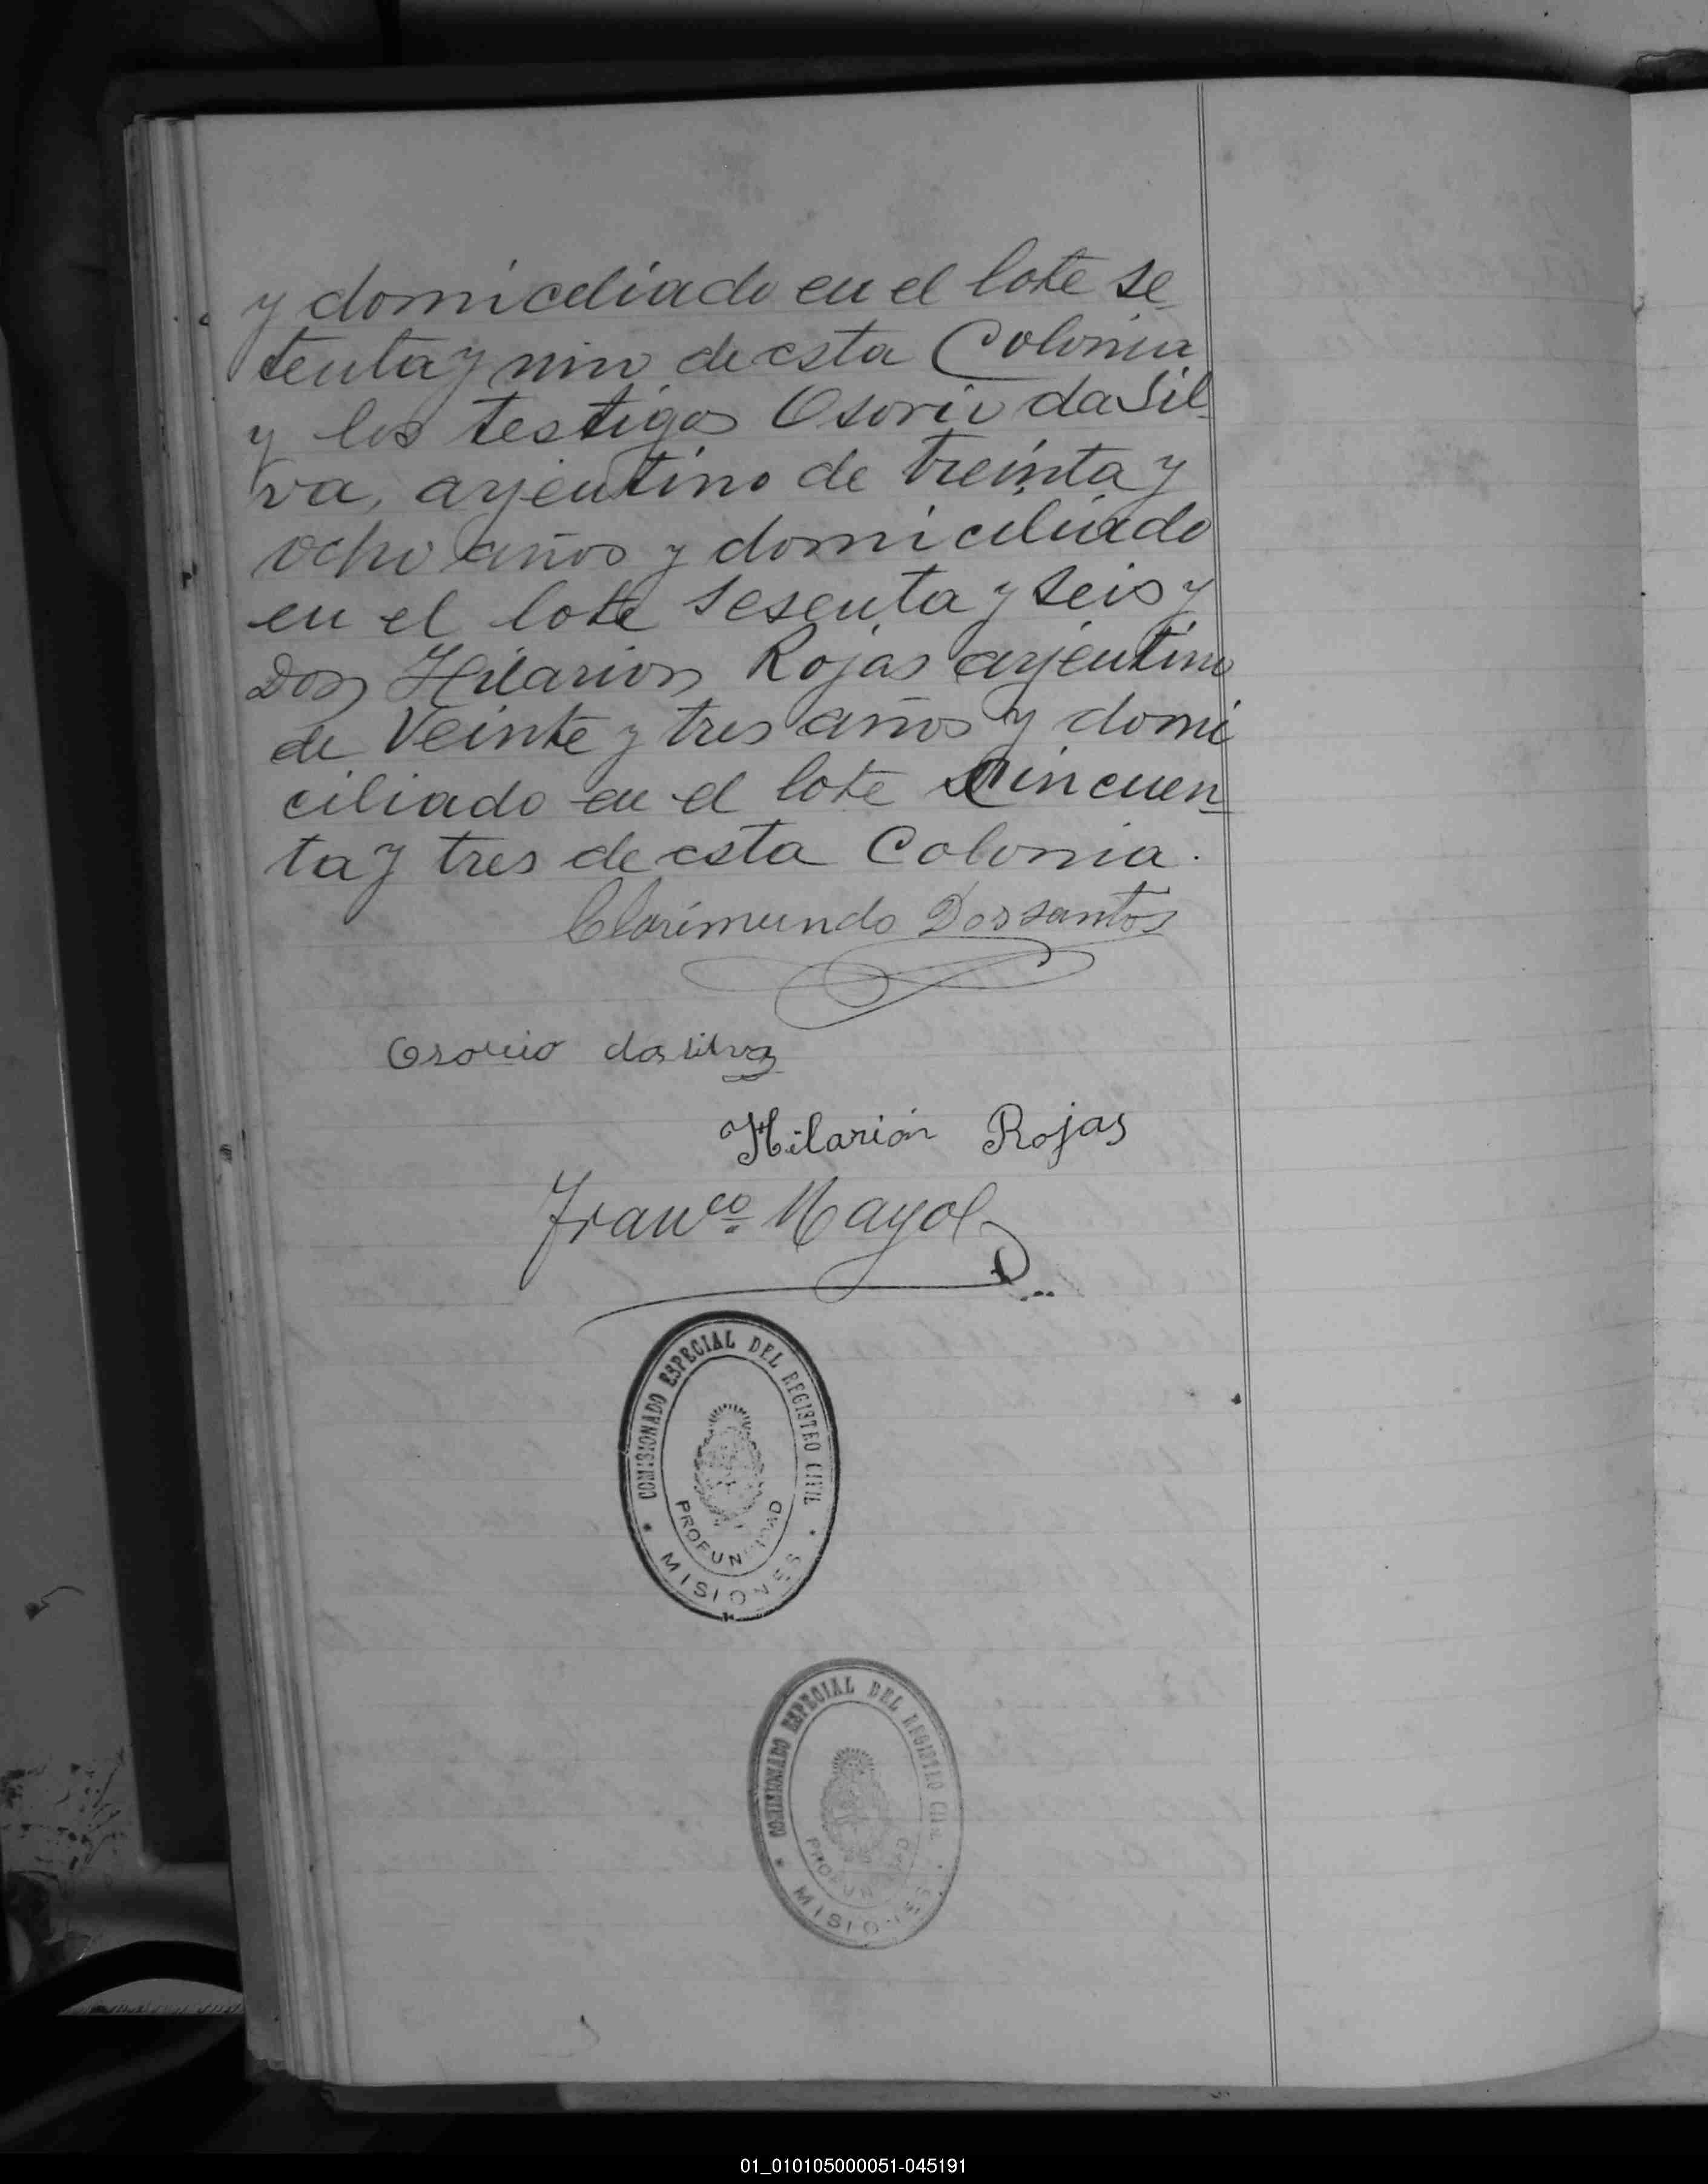 y domiciliado en el lote se
tenta y uno de esta Colonia
y los testigos Osorio da Sil
va, arjentino de treinta y
ocho años y domiciliado
en el lote sesenta y seis y
Don Hilarion Rojas arjentino
de Veinte y tres años y domi
ciliado en el lote Cincuen
ta y tres de esta Colonia.
Clarimundo Dossantos
Osorio da silva
Hilarión Rojas
Franco Mayol
COMISIONADO ESPECIAL DEL REGISTRO CIVIL
PROFUNDIDAD
MISIONES
COMISIONADO ESPECIAL DEL REGISTRO CIVIL
PROFUNDIDAD
MISIONES
01_010105000051-045191